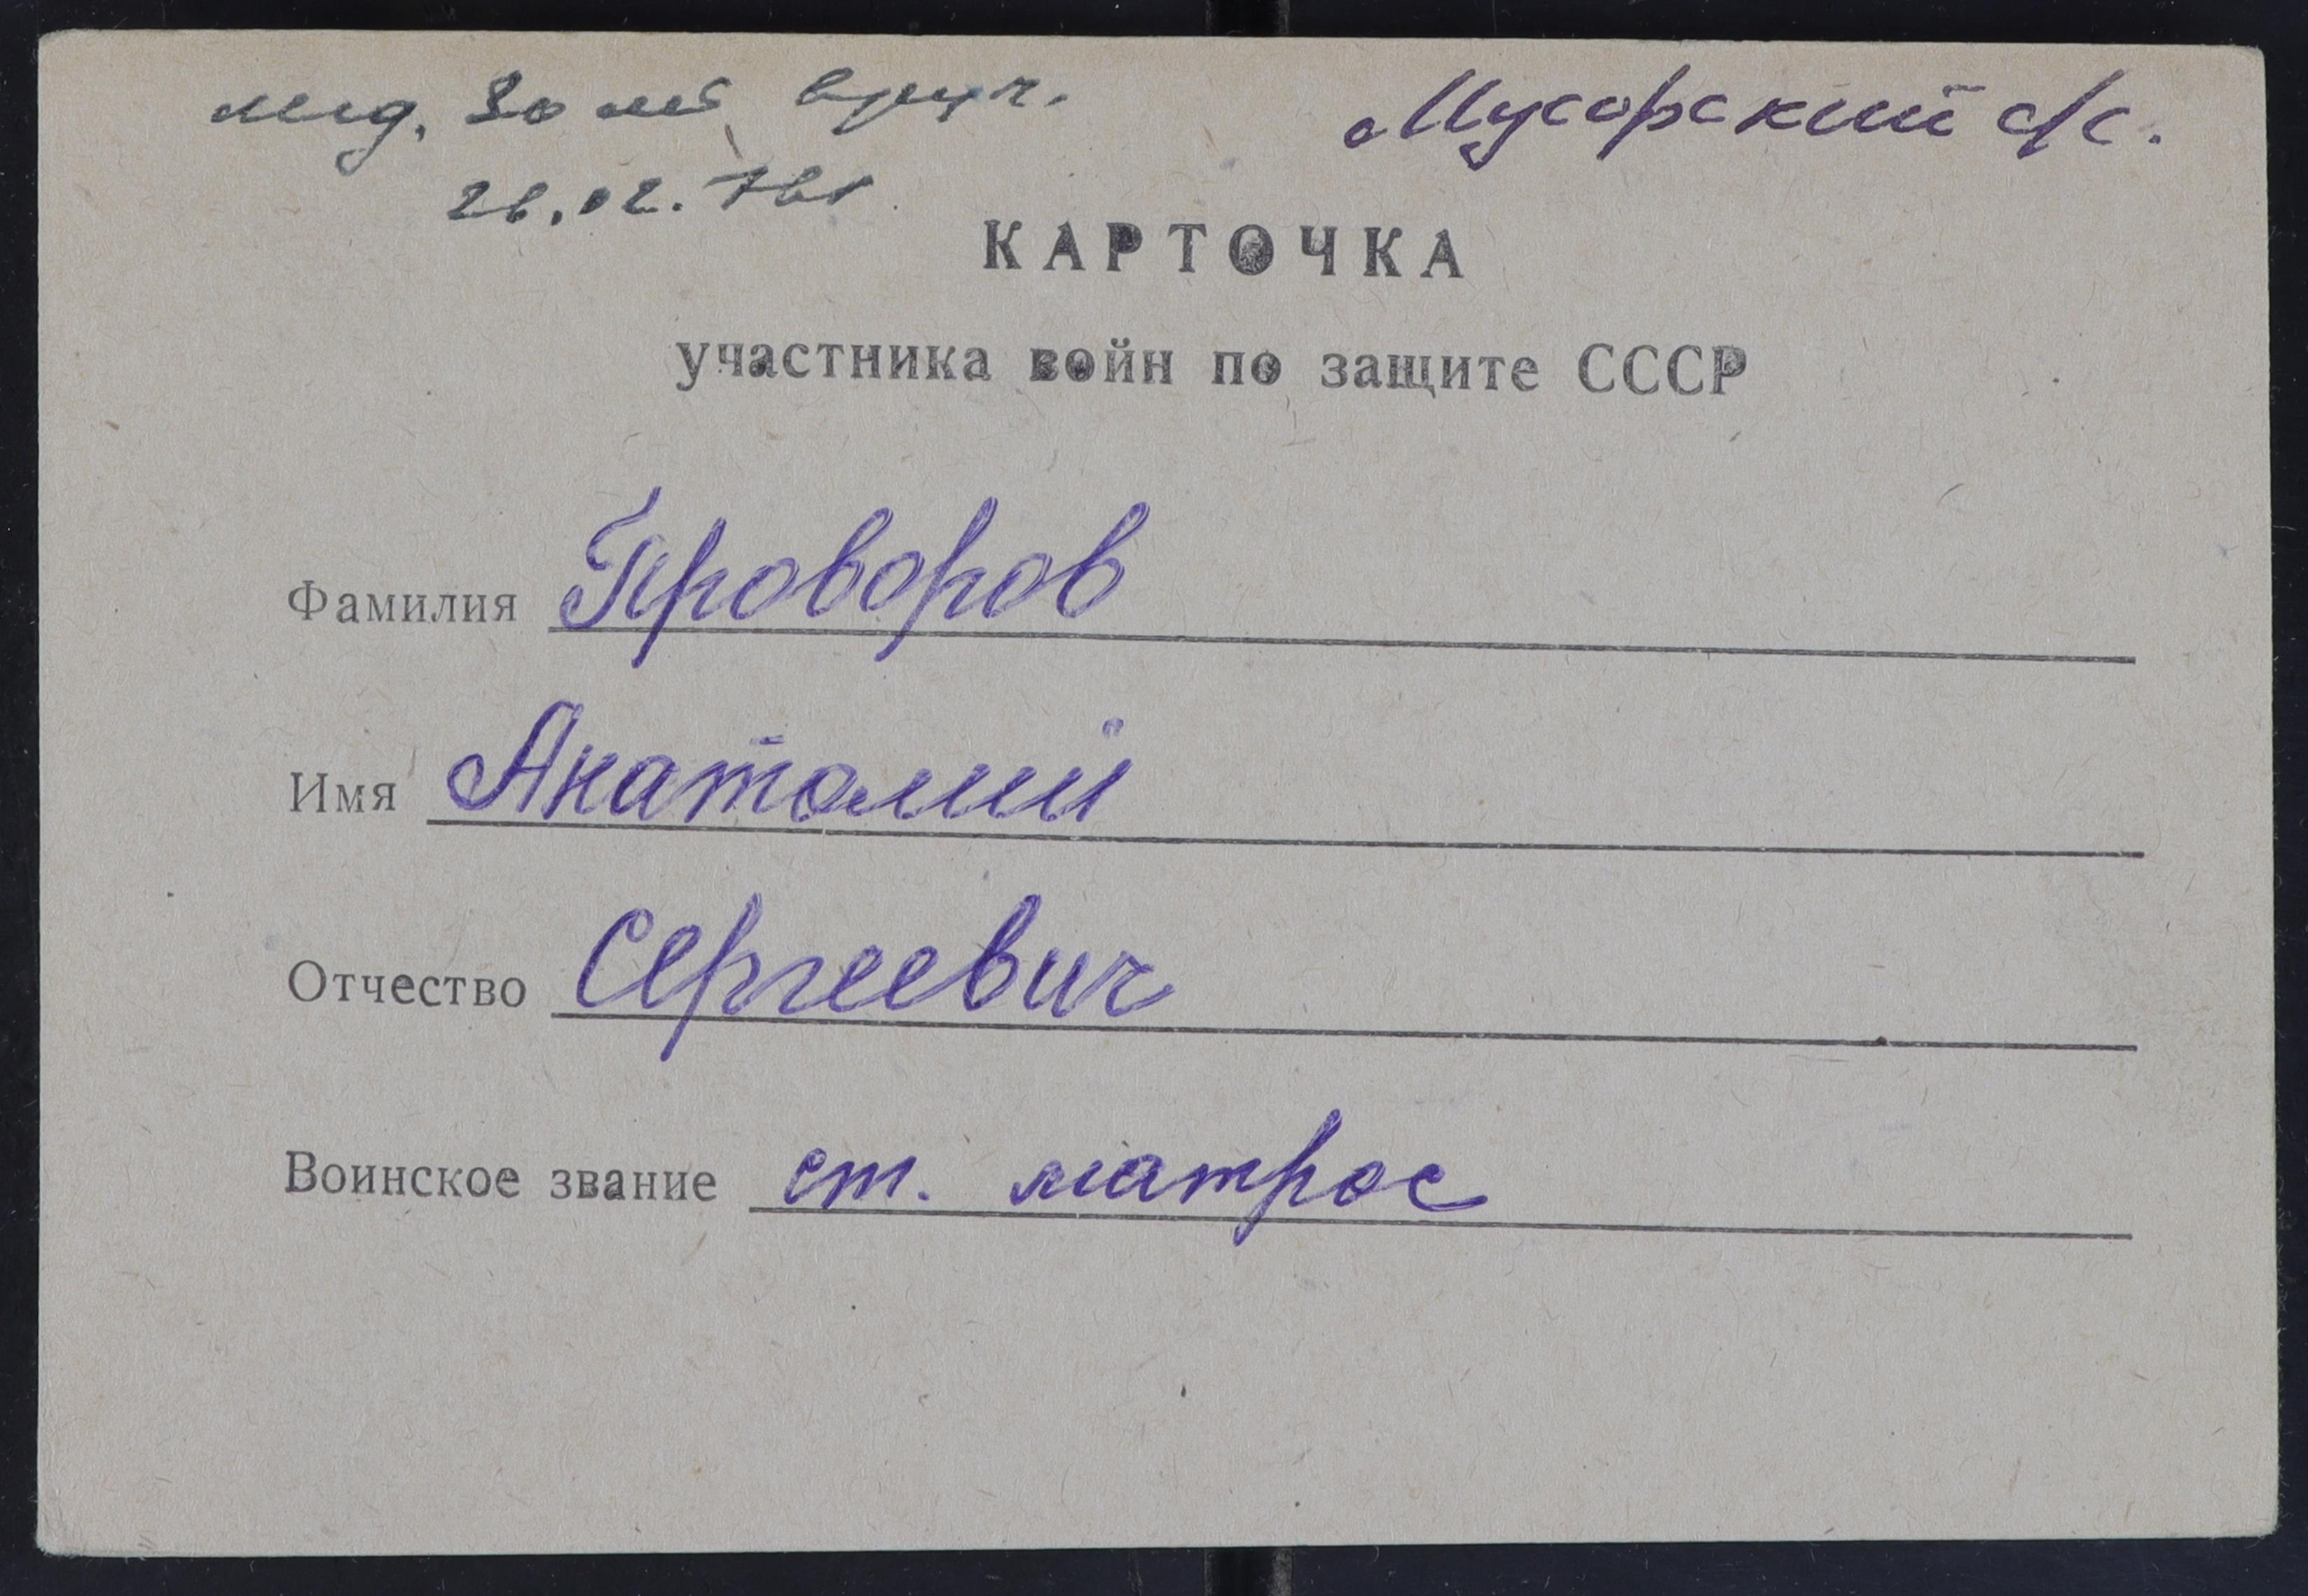 мед. 30 лет вруч.
Мусорский с/с.
26.02.76г
КАРТОЧКА
участника войн по защите СССР
Фамилия Проворов
Имя Анатолий
Отчество Сергеевич
Воинское звание ст. матрос